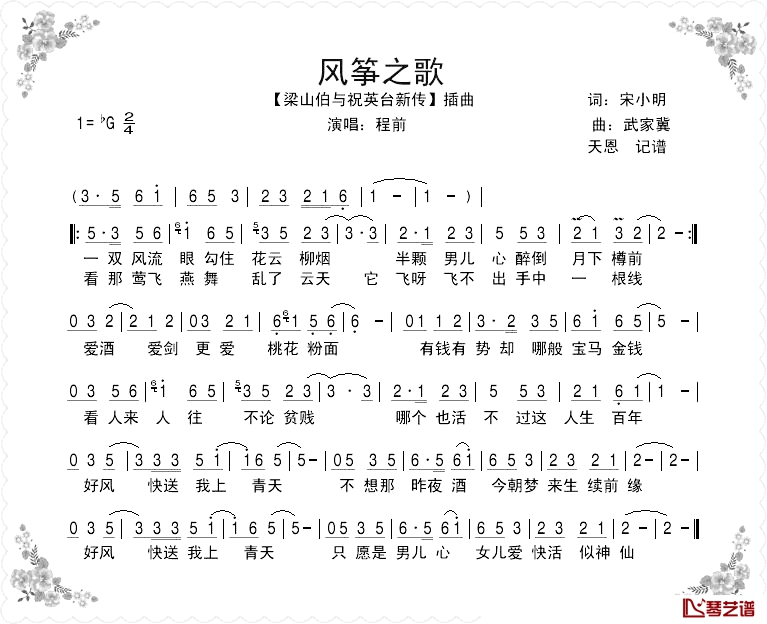 风筝之歌
【梁山伯与祝英台新传】插曲 词：宋小明
1=♭G 2/4 演唱：程前 曲：武家冀
天恩 记谱
(3·5 6i|653|23 216|1-|1-)|
‖:5·3 56|i 65|35 23|3·3|2·1 23|5 53|2i 32|2-:‖
一双风流 眼勾住 花云柳烟 半颗男儿 心醉倒 月下樽前
看那莺飞 燕舞 乱了云天 它 飞呀飞不出手中一 根线
032|212|03 21|61 56|6-|01 12|3·2 35|6i 65|5-|
爱酒 爱剑 更爱 桃花粉面 有钱有势却哪般宝马金钱
03 56|i 65|35 23|3·3|2·1 23|5 53|23 21|61|1-|
看人来人往 不论贫贱 哪个也活不过这人生百年
035|5333|5i|i65|5-|05 35|6·56i|653|23 21|2-|
好风 快送我上 青天 不想那昨夜酒 今朝梦来生续前缘
035|5333|5i|i65|5-|0535|6·56i|653|23 21|2-|2-‖
好风 快送我上 青天 只愿是男儿心 女儿爱快活似神仙
琴艺谱